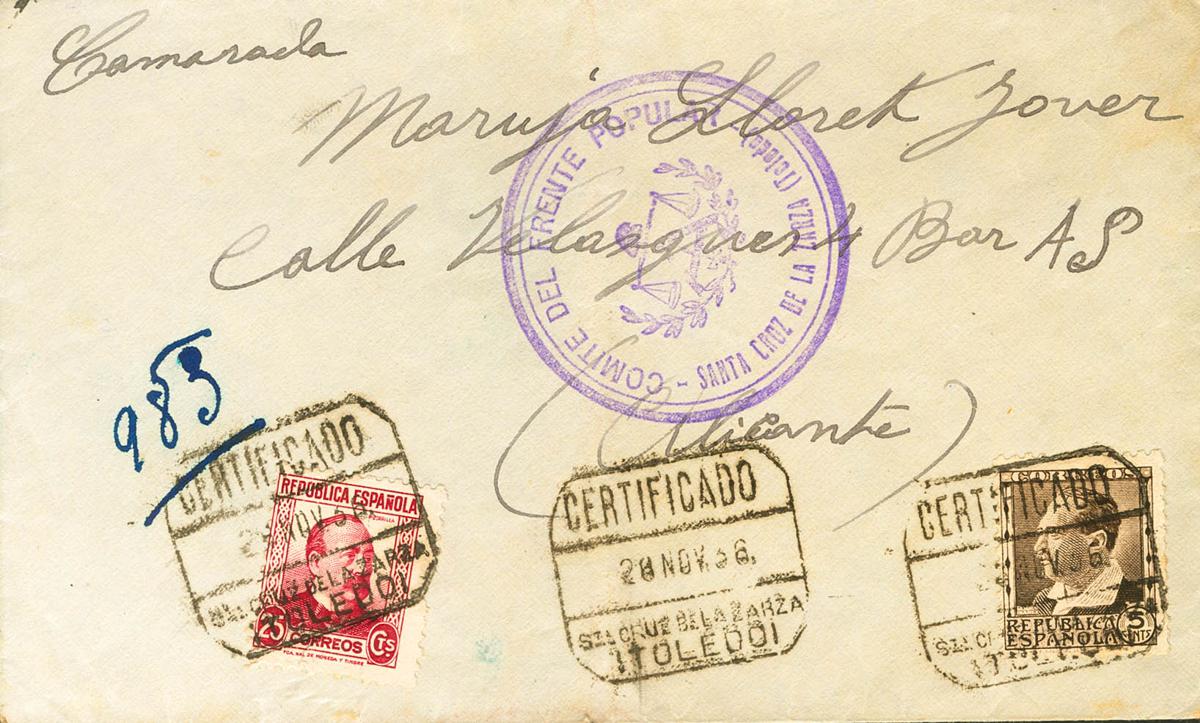 Camarada
Maruja Lloret Jover
Calle Velasques 4 Bar AS
(Alicante)
COMITE DEL FRENTE POPULAR - SANTA CRUZ DE LA ZARZA (Toledo)
983
CERTIFICADO
2 NOV 36.
STA CRUZ DE LA ZARZA
(TOLEDO)
REPUBLICA ESPAÑOLA
25 CORREOS Cts
FCA. NAL DE MONEDA Y TIMBRE
CERTIFICADO
28 NOV. 36.
STA CRUZ DE LA ZARZA
(TOLEDO)
CERTIFICADO
NOV 36.
STA
CORREOS
REPUBLICA
ESPAÑOLA
5 CNTS